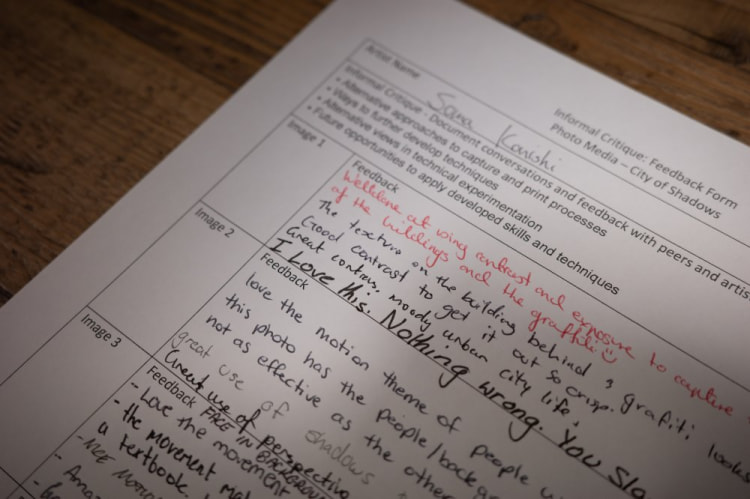 Informal Critique: Feedback Form
Photo Media – City of Shadows
Artist Name
Sana
Informal Critique - Document conversations and feedback with peers and artis
• Alternative approaches to capture and print processes
• Ways to further develop techniques
• Alternative views in technical experimentation
• Future opportunities to apply developed skills and techniques
Image 1
Feedback
Welldone at using contrast and exposure to capture
of the buildings and the graffiti ☺
The texture on the building behind & grafiti looks
Good contrast to get it out so crisp.
Great contrast, moody urban city life.
I Love this. Nothing wrong. You Sla
Image 2
Feedback
love the motion theme of people
this photo has the people/backg
not as effective as the other
great use of shadows
Great use of perspective
Image 3
Feedback
FACE IN BACKGROUND
-- Love the movement
- the movement ma
a textbook.
- NICE
- Ama